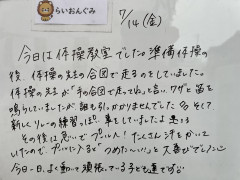 らいおんぐみ
7/14(金)
今日は体操教室でした。準備体操の
後、体操の先生の合図で走るのをしていました。
体操の先生が「手の合図で走ってね」と言い、ワザと笛を
鳴らしていましたが、誰も引っかかりませんでした そして
新しくリレーの練習っぽい事をしていましたよ
その後は急いでプールへ! たくさん汗をかいて
いたので、プールに入ると「つめたーい!!」と大喜びでした
今日一日、よく動いて頑張っている子ども達です